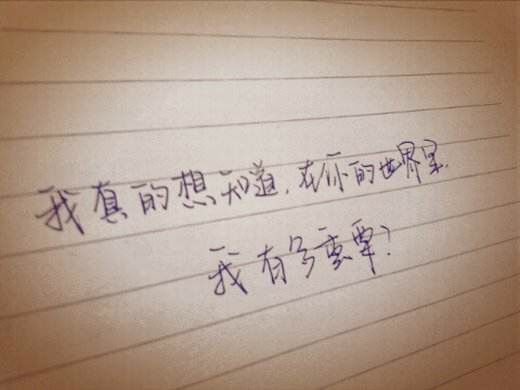 我真的想知道.在你的世界里.
我有多重要?